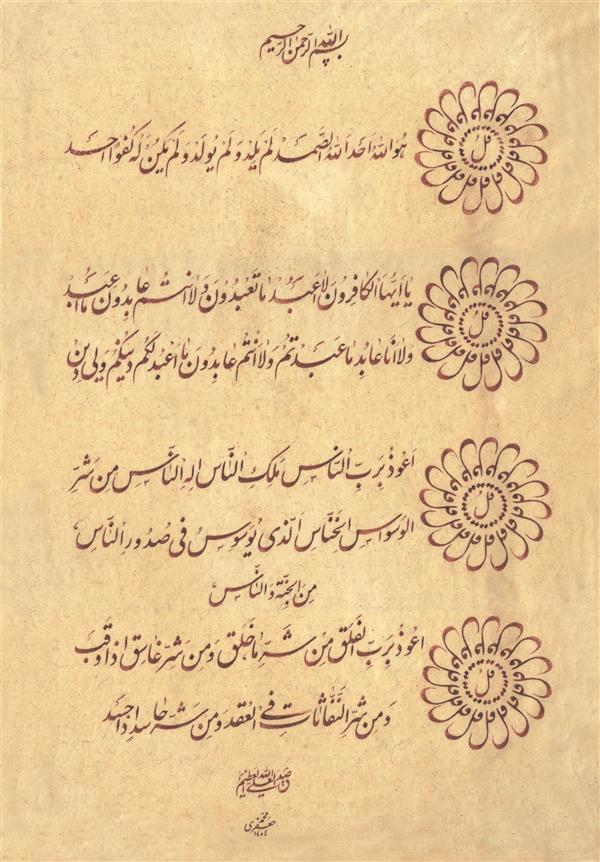 بسم الله الرحمن الرحیم
قل هُوَ اللهُ اَحَد اَللهُ الصَّمَد لَم یَلِد وَ لَم یُولَد وَ لَم یَکُن لَهُ کُفُواً اَحَد
قل یا اَیُّهَا الکافِرُونَ لا اَعبُدُ ما تَعبُدُونَ وَ لا اَنتُم عابِدُونَ ما اَعبُد
وَ لا اَنَا عابِد ما عَبَدتُم وَ لا اَنتُم عابِدُونَ ما اَعبُد لَکُم دینُکُم وَلِیَ دین
قل اَعُوذُ بِرَبِّ النّاس مَلِکِ النّاس اِلهِ النّاس مِن شَرِّ
الوَسواسِ الخَنّاس اَلَّذی یُوَسوِسُ فی صُدُورِ النّاس
مِنَ الجِنَّةِ وَ النّاس
قل اَعُوذُ بِرَبِّ الفَلَق مِن شَرِّ ما خَلَق وَ مِن شَرِّ غاسِقٍ اِذا وَقَب
وَ مِن شَرِّ النَّفّاثاتِ فِی العُقَد وَ مِن شَرِّ حاسِدٍ اِذا حَسَد
صدق الله العلی العظیم
جعفری
۱۴۰۴